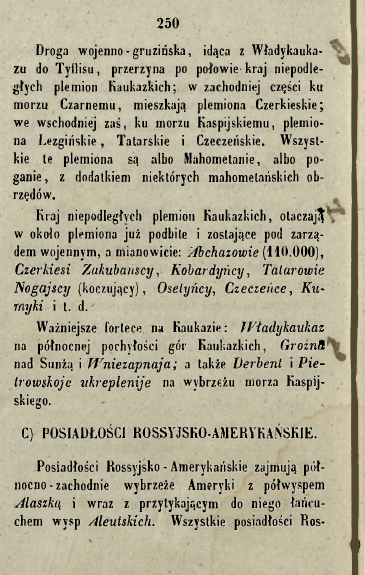 250
Droga wojenno-gruzińska, idąca z Władykauka-
zu do Tyflisu, przerzyna po połowie kraj niepodle-
głych plemion Kaukazkich; w zachodniej części ku
morzu Czarnemu, mieszkają plemiona Czerkieskie;
we wschodniej zaś, ku morzu Kaspijskiemu, plemio-
na Lezgińskie, Tatarskie i Czeczeńskie. Wszyst-
kie te plemiona są albo Mahometanie, albo po-
ganie, z dodatkiem niektórych mahometańskich ob-
rzędów.
Kraj niepodległych plemion Kaukazkich, otaczają
w około plemiona już podbite i zostające pod zarzą-
dem wojennym, a mianowicie: Abchazowie (110.000),
Czerkiesi Zakubańscy, Kobardyńcy, Tatarowie
Nogajscy (koczujący), Osetyńcy, Czeczeńce, Ku-
myki i t. d.
Ważniejsze fortece na Kaukazie: Władykaukaz
na północnej pochyłości gór Kaukazkich, Groźna
nad Sunżą i Wniezapnaja; a także Derbent i Pie-
trowskoje ukreplenije na wybrzeżu morza Kaspij-
skiego.
C) POSIADŁOŚCI ROSSYJSKO-AMERYKAŃSKIE.
Posiadłości Rossyjsko-Amerykańskie zajmują pół-
nocno-zachodnie wybrzeże Ameryki z półwyspem
Alaszką i wraz z przytykającym do niego łańcu-
chem wysp Aleutskich. Wszystkie posiadłości Ros-